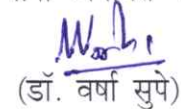 (डॉ. वर्षा सुपे)